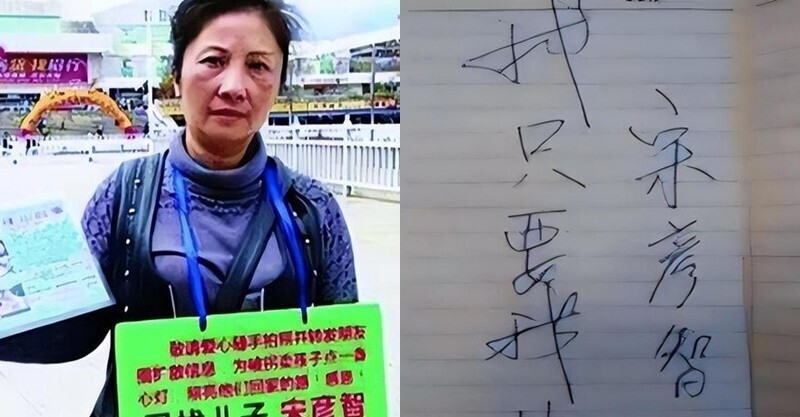 敬请爱心随手拍照并转发朋友
圈扩散信息，为被拐卖孩子点一盏
心灯，照亮他们回家的路！感恩！
寻找儿子 宋彦智
宋彦智
我只要我